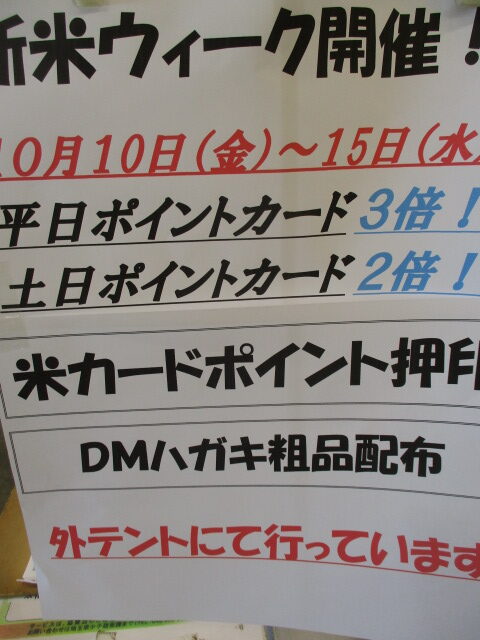 新米ウィーク開催！
10月10日（金）～15日（水）
平日ポイントカード 3倍！
土日ポイントカード 2倍！
米カードポイント押印
DMハガキ粗品配布
外テントにて行っています